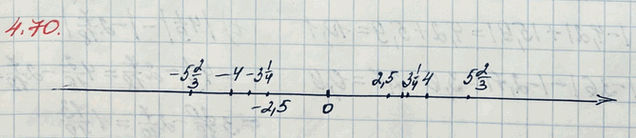 4.70.
-5 2/3 -4 -3 1/4 2,5 3 1/4 4 5 2/3
-2,5 0